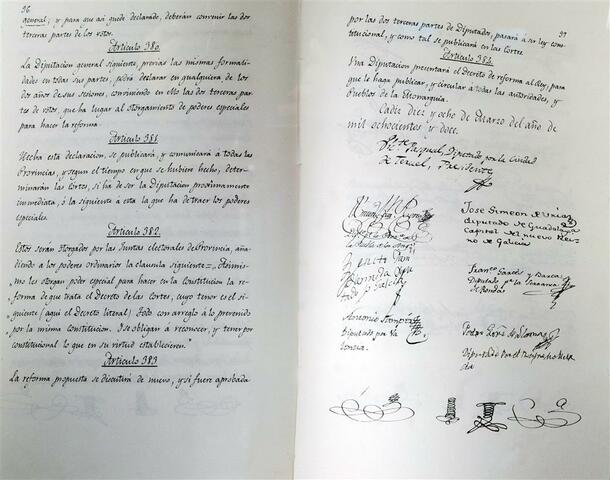 96
general; y para que asi quede declarado, deberán convenir las dos
terceras partes de los votos.
Articulo 380.
La Diputacion general siguiente, previas las mismas formali-
dades en todas sus partes, podrá declarar en qualquiera de los
dos años de sus sesiones, conviniendo en ello las dos terceras par-
tes de votos, que ha lugar al otorgamiento de poderes especiales
para hacer la reforma.
Articulo 381.
Hecha esta declaracion, se publicará, y comunicará á todas las
Provincias, y segun el tiempo en que se hubiere hecho, deter-
minarán las Cortes, si ha de ser la Diputacion proximamente
inmediata, ó la siguiente á esta la que ha de traer los poderes
especiales.
Articulo 382.
Estos serán otorgados por las Juntas electorales de Provincia, aña-
diendo a los poderes ordinarios la clausula siguiente = Asimis-
mo les otorgan poder especial para hacer en la Constitucion la re-
forma de que trata el Decreto de las Cortes, cuyo tenor es el si-
guiente (aqui el Decreto literal) Todo con arreglo á lo prevenido
por la misma constitucion. Y se obligan á reconocer, y tener por
constitucional lo que en su virtud establecieren."
Articulo 383
La reforma propuesta se discutirá de nuevo, y si fuere aprobada
97
por las dos terceras partes de Diputados, pasará á ser ley cons-
titucional, y como tal se publicará en las Cortes.
Articulo 384.
Una Diputacion presentará el Decreto de reforma al Rey, para
que le haga publicar, y circular á todas las autoridades, y
Pueblos de la Monarquia.
Cadiz diez y ocho de Marzo del año de
mil ochocientos y doce.
Vic.te Pasqual, Diputado por la Ciudad
de Teruel, Presidente
Jose Simeon de Uria
diputado de Guadalaxa
Capital del nuevo Rei-
no de Galicia
Benito Ram
Bermuda Dipu
tado p Galicia
Fran.co Garcés y Barea
Diputado p.r la Serrania
de Ronda
Antonio Samper
Diputado por Va
lencia.
Pedro
Diputado